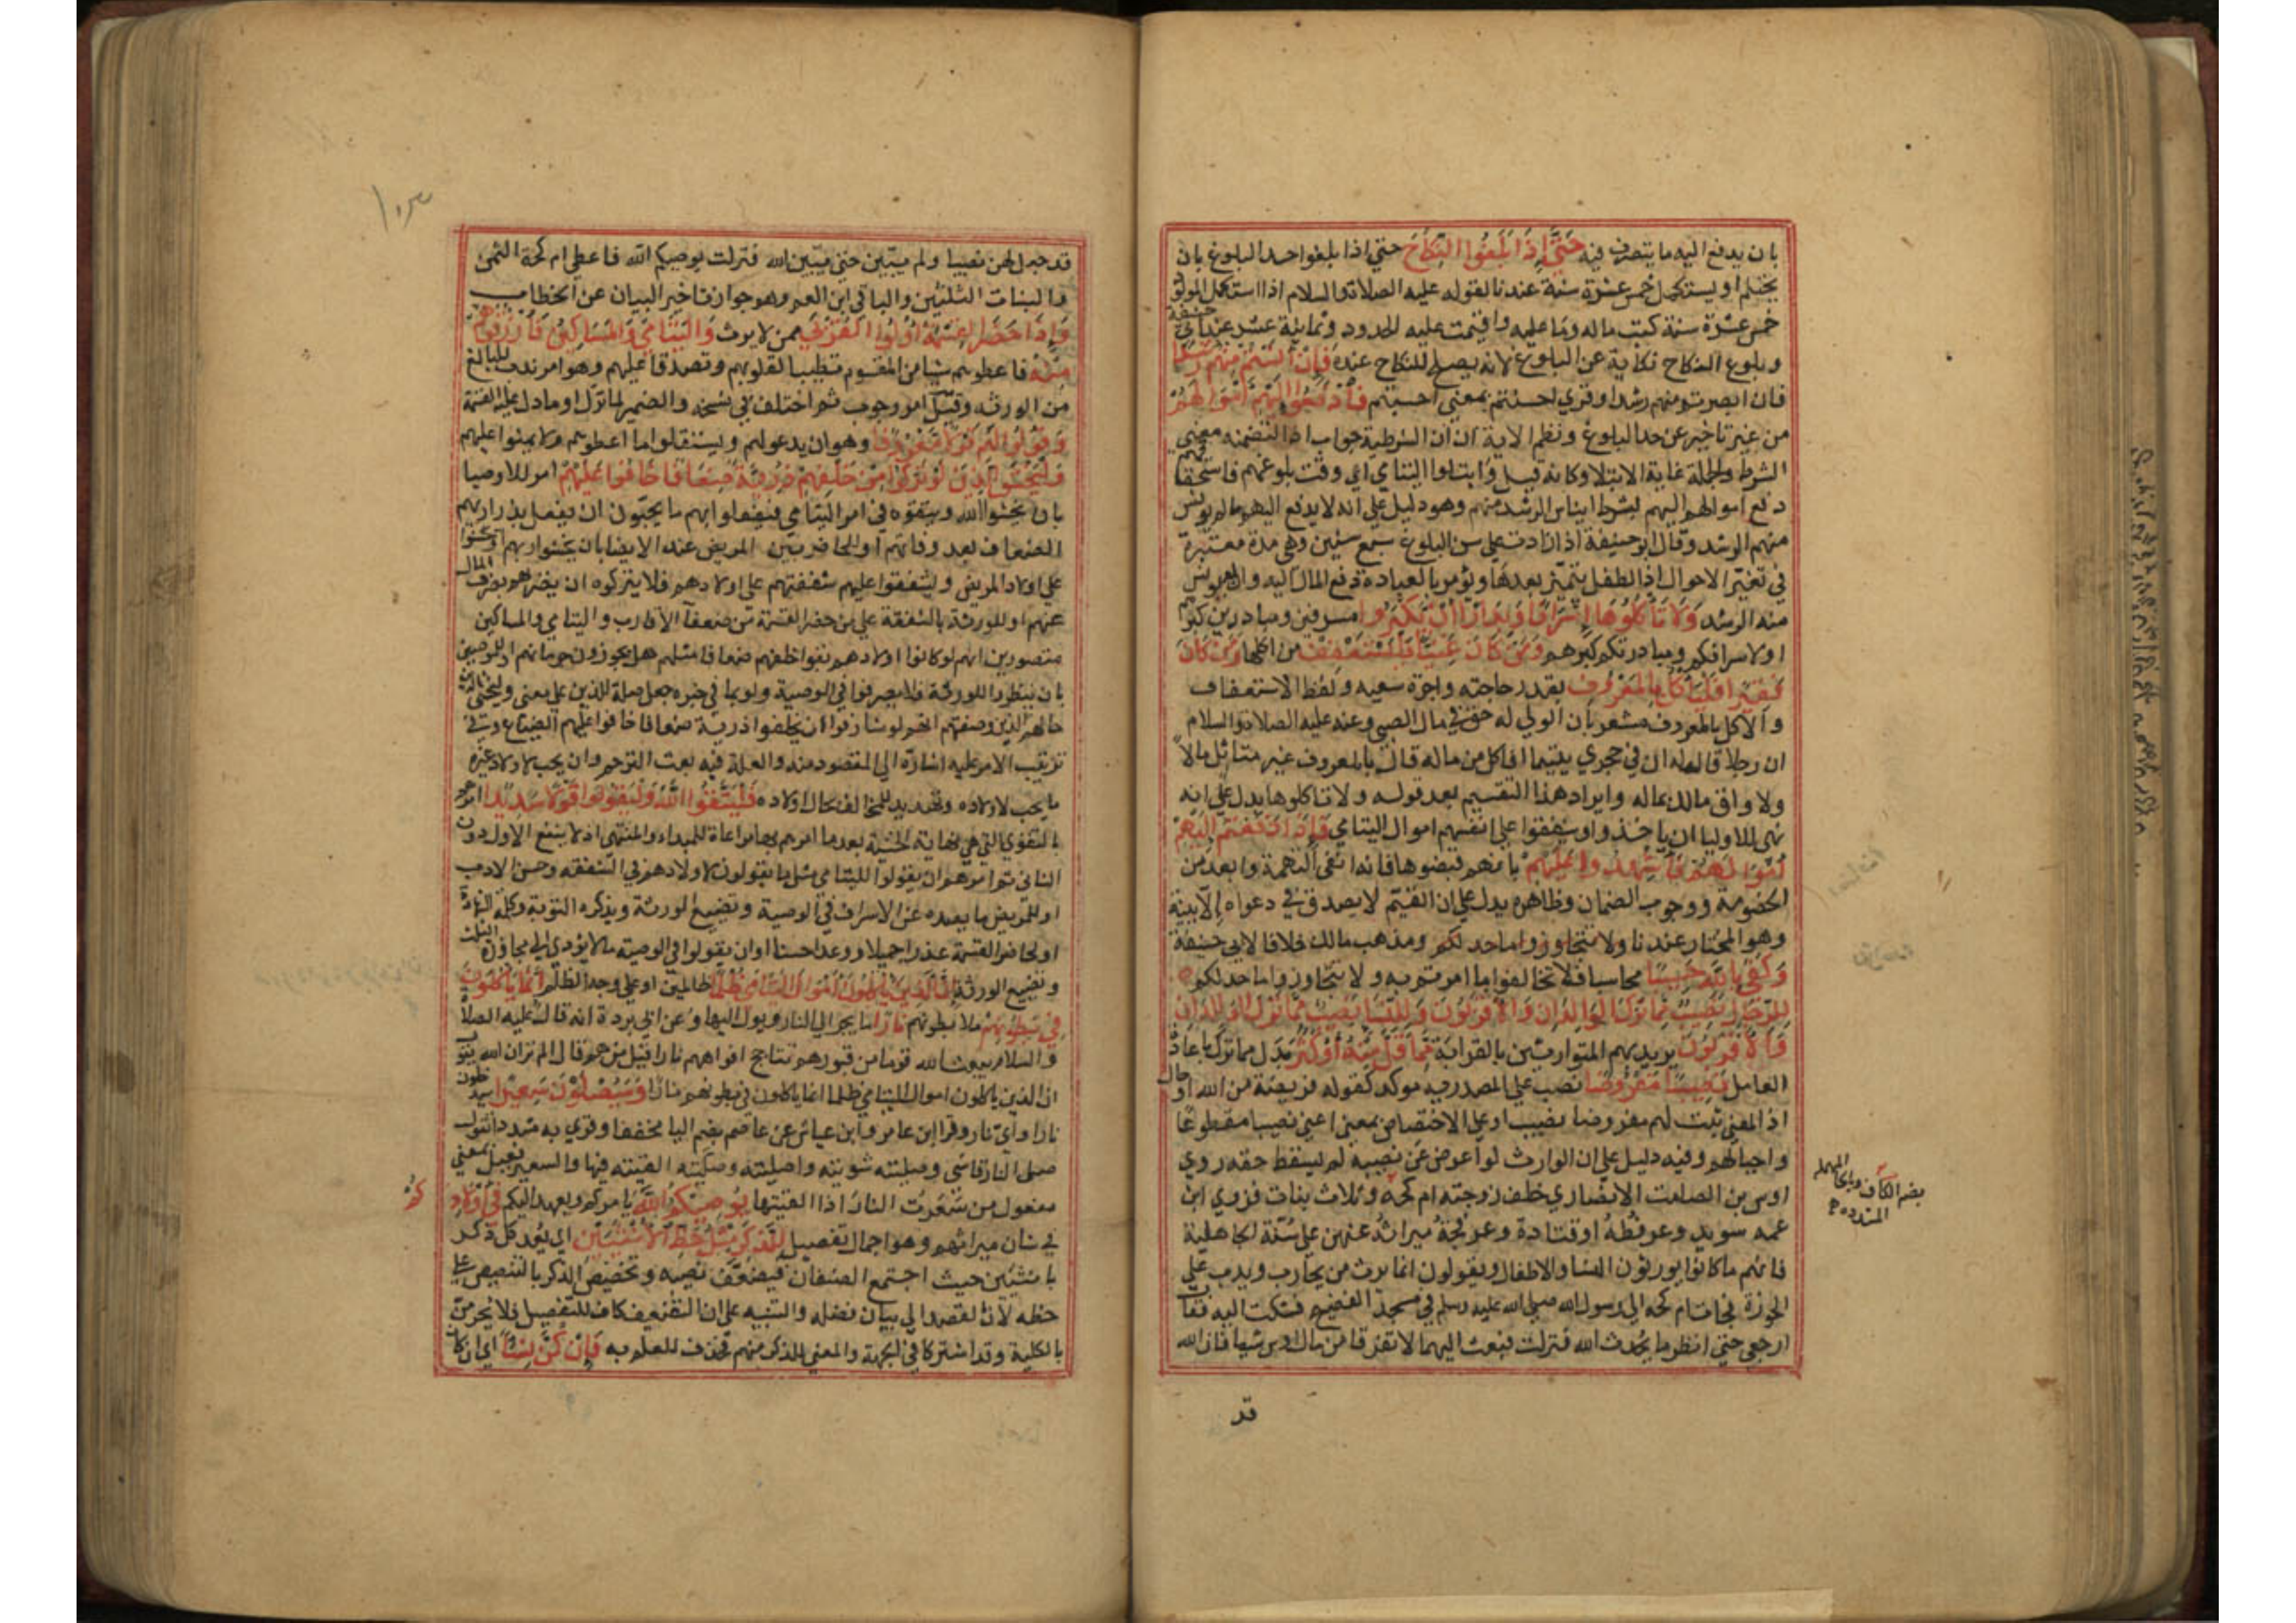 بان يدفع اليه ما يتصرف فيه حَتَّىٰ إِذَا بَلَغُوا النِّكَاحَ حتي اذا بلغوا حد البلوغ بان
يحتلم او يستكمل خمس عشرة سنة عندنا لقوله عليه الصلاة والسلام اذا استكمل المولود
خمس عشرة سنة كتب ماله وما عليه واقيمت عليه الحدود وثمانية عشر عند ابي حنيفة
وبلوغ النكاح كناية عن البلوغ لانه يصلح للنكاح عنده فَإِنْ آنَسْتُمْ مِنْهُمْ رُشْدًا
فان ابصرتم منهم رشدا وقري احستم بمعني احسستم فَادْفَعُوا إِلَيْهِمْ أَمْوَالَهُمْ
من غير تاخير عن حد البلوغ ونظم الاية ان ان الشرطية جواب اذا المتضمنة معني
الشرط والجملة غاية الابتلا وكانه قيل وابتلوا اليتامي الي وقت بلوغهم فاستحقاقهم
دفع اموالهم اليهم بشرط ايناس الرشد منهم وهو دليل علي انه لا يدفع اليهم ما لم يونس
منهم الرشد وقال ابو حنيفة اذا زادت علي سن البلوغ سبع سنين وهي مدة معتبرة
في تغير الاحوال اذ الطفل يتميز بعدها ويؤمر بالعبادة دفع المال اليه وان لم يونس
منه الرشد وَلَا تَأْكُلُوهَا إِسْرَافًا وَبِدَارًا أَنْ يَكْبَرُوا مسرفين ومبادرين كبرهم
او لاسرافكم ومبادرتكم كبرهم وَمَنْ كَانَ غَنِيًّا فَلْيَسْتَعْفِفْ من اكلها وَمَنْ كَانَ
فَقِيرًا فَلْيَأْكُلْ بِالْمَعْرُوفِ بقدر حاجته واجرة سعيه ولفظ الاستعفاف
والاكل بالمعروف مشعر بان الولي له حق في مال الصبي وعنه عليه الصلاة والسلام
ان رجلا قال له ان في حجري يتيما افآكل من ماله قال بالمعروف غير متاثل مالا
ولا واق مالك بماله وايراد هذا التقسيم بعد قوله ولا تاكلوها يدل علي انه
نهي للاوليا ان ياخذوا وينفقوا علي انفسهم اموال اليتامي فَإِذَا دَفَعْتُمْ إِلَيْهِمْ
أَمْوَالَهُمْ فَأَشْهِدُوا عَلَيْهِمْ بانهم قبضوها فانه انفي للتهمة وابعد من
الخصومة ووجوب الضمان وظاهره يدل علي ان القيم لا يصدق في دعواه الا ببينة
وهو المختار عندنا ومذهب مالك خلافا لابي حنيفة
وَكَفَىٰ بِاللَّهِ حَسِيبًا محاسبا فلا تخالفوا ما امرتم به ولا تتجاوزوا ما حد لكم
لِلرِّجَالِ نَصِيبٌ مِمَّا تَرَكَ الْوَالِدَانِ وَالْأَقْرَبُونَ وَلِلنِّسَاءِ نَصِيبٌ مِمَّا تَرَكَ الْوَالِدَانِ
وَالْأَقْرَبُونَ يريد بهم المتوارثين بالقرابة مِمَّا قَلَّ مِنْهُ أَوْ كَثُرَ بدل مما ترك باعادة
العامل نَصِيبًا مَفْرُوضًا نصب علي انه مصدر موكد كقوله فريضة من الله او حال
اذ المعني ثبت لهم مفروضا نصيب او علي الاختصاص بمعني اعني نصيبا مقطوعا
واجبا لهم وفيه دليل علي ان الوارث لو اعرض عن نصيبه لم يسقط حقه روي
اوس بن الصامت الانصاري خلف زوجته ام كحة وثلاث بنات فزوي ابن
عمه سويد وعرفطة او قتادة وعرفجة ميراثه عنهن علي سنة الجاهلية
فانهم ما كانوا يورثون النسا والاطفال ويقولون انما يرث من يحارب ويذب عن
الحوزة فجات ام كحة الي رسول الله صلي الله عليه وسلم في مسجد الفضيخ فشكت اليه فقال
ارجعي حتي انظر ما يحدث الله فنزلت فبعث اليهما لا تفرقا من مال اوس شيا فان الله
قد
بضم الكاف والحا المهملة
المشددة
قد جعل لهن نصيبا ولم يبين حتي يبين الله فنزلت يوصيكم الله فاعطي ام كحة الثمن
والبنات الثلثين والباقي ابن العم وهو جواز تاخير البيان عن الخطاب
وَإِذَا حَضَرَ الْقِسْمَةَ أُولُوا الْقُرْبَىٰ ممن لا يرث وَالْيَتَامَىٰ وَالْمَسَاكِينُ فَارْزُقُوهُمْ
مِنْهُ فاعطوهم شيا من المقسوم تطييبا لقلوبهم وتصدقا عليهم وهو امر ندب للبالغ
من الورثة وقيل امر وجوب ثم اختلف في نسخه والضمير لما ترك او ما دل عليه القسمة
وَقُولُوا لَهُمْ قَوْلًا مَعْرُوفًا وهو ان يدعوا لهم ويستقلوا ما اعطوهم ولا يمنوا عليهم
وَلْيَخْشَ الَّذِينَ لَوْ تَرَكُوا مِنْ خَلْفِهِمْ ذُرِّيَّةً ضِعَافًا خَافُوا عَلَيْهِمْ امر للاوصيا
بان يخشوا الله ويتقوه في امر اليتامي فيفعلوا بهم ما يحبون ان يفعل بذراريهم
الضعاف بعد وفاتهم او للحاضرين المريض عند الايصا بان يخشوا ربهم او يخشوا
علي اولاد المريض ويشفقوا عليهم شفقتهم علي اولادهم فلا يتركوه ان يضر بهم بصرف المال
عنهم او للورثة بالشفقة علي من حضر القسمة من ضعفا الاقارب واليتامي والمساكين
متصورين انهم لو كانوا اولادهم بقوا خلفهم ضعافا مثلهم هل يجوزون حرمانهم او للموصين
بان ينظروا للورثة فلا يسرفوا في الوصية ولو بما في حيزه جعل صلة للذين علي معني وليخش الذين
حالهم وصفتهم انهم لو شارفوا ان يخلفوا ذرية ضعافا خافوا عليهم الضياع وفي
ترتيب الامر عليه اشارة الي المقصود منه والعلة فيه بعث الترحم وان يحب لاولاد غيره
ما يحب لاولاده وتهديد للمخالف بحال اولاده فَلْيَتَّقُوا اللَّهَ وَلْيَقُولُوا قَوْلًا سَدِيدًا امرهم
بالتقوي التي هي نهاية الخشية بعد ما امرهم بها مراعاة للمبدا والمنتهي اذ لا ينفع الاول دون
الثاني ثم امرهم ان يقولوا لليتامي مثل ما يقولون لاولادهم في الشفقة وحسن الادب
او للمريض ما يصده عن الاسراف في الوصية وتضييع الورثة ويذكره التوبة وكلمة الشهادة
او لحاضر القسمة عذرا جميلا ووعدا حسنا او ان يقولوا في الوصية ما لا يؤدي الي مجاوزة الثلث
وتضييع الورثة إِنَّ الَّذِينَ يَأْكُلُونَ أَمْوَالَ الْيَتَامَىٰ ظُلْمًا ظالمين او علي وجه الظلم إِنَّمَا يَأْكُلُونَ
فِي بُطُونِهِمْ ملا بطونهم نَارًا ما يجر الي النار ويول اليها وعن ابي بردة انه قال عليه الصلاة
والسلام يبعث الله قوما من قبورهم تتاجج افواههم نارا فقيل من هم قال الم تر ان الله يقول
ان الذين ياكلون اموال اليتامي ظلما انما ياكلون في بطونهم نارا وَسَيَصْلَوْنَ سَعِيرًا سيدخلون
نارا واي نار وقرا ابن عامر وابن عياش عن عاصم بضم اليا مخففا وقري به مشددا تقول
صلي النار قاسي وصليته شويته واصليته وصليته القيته فيها والسعير فعيل بمعني
مفعول من سعرت النار اذا الهبتها يُوصِيكُمُ اللَّهُ يامركم ويعهد اليكم فِي أَوْلَادِكُمْ
في شان ميراثهم وهو اجمال تفصيل لِلذَّكَرِ مِثْلُ حَظِّ الْأُنْثَيَيْنِ اي يعد كل ذكر
بانثيين حيث اجتمع الصنفان فيضعف نصيبه وتخصيص الذكر بالتنصيص علي
حظه لان القصد الي بيان فضله والتنبيه علي ان التضعيف كاف للتفضيل فلا يحرمن
بالكلية وقد اشتركا في الجهة والمعني للذكر منهم فحذف للعلم به فَإِنْ كُنَّ نِسَاءً اي ان كان